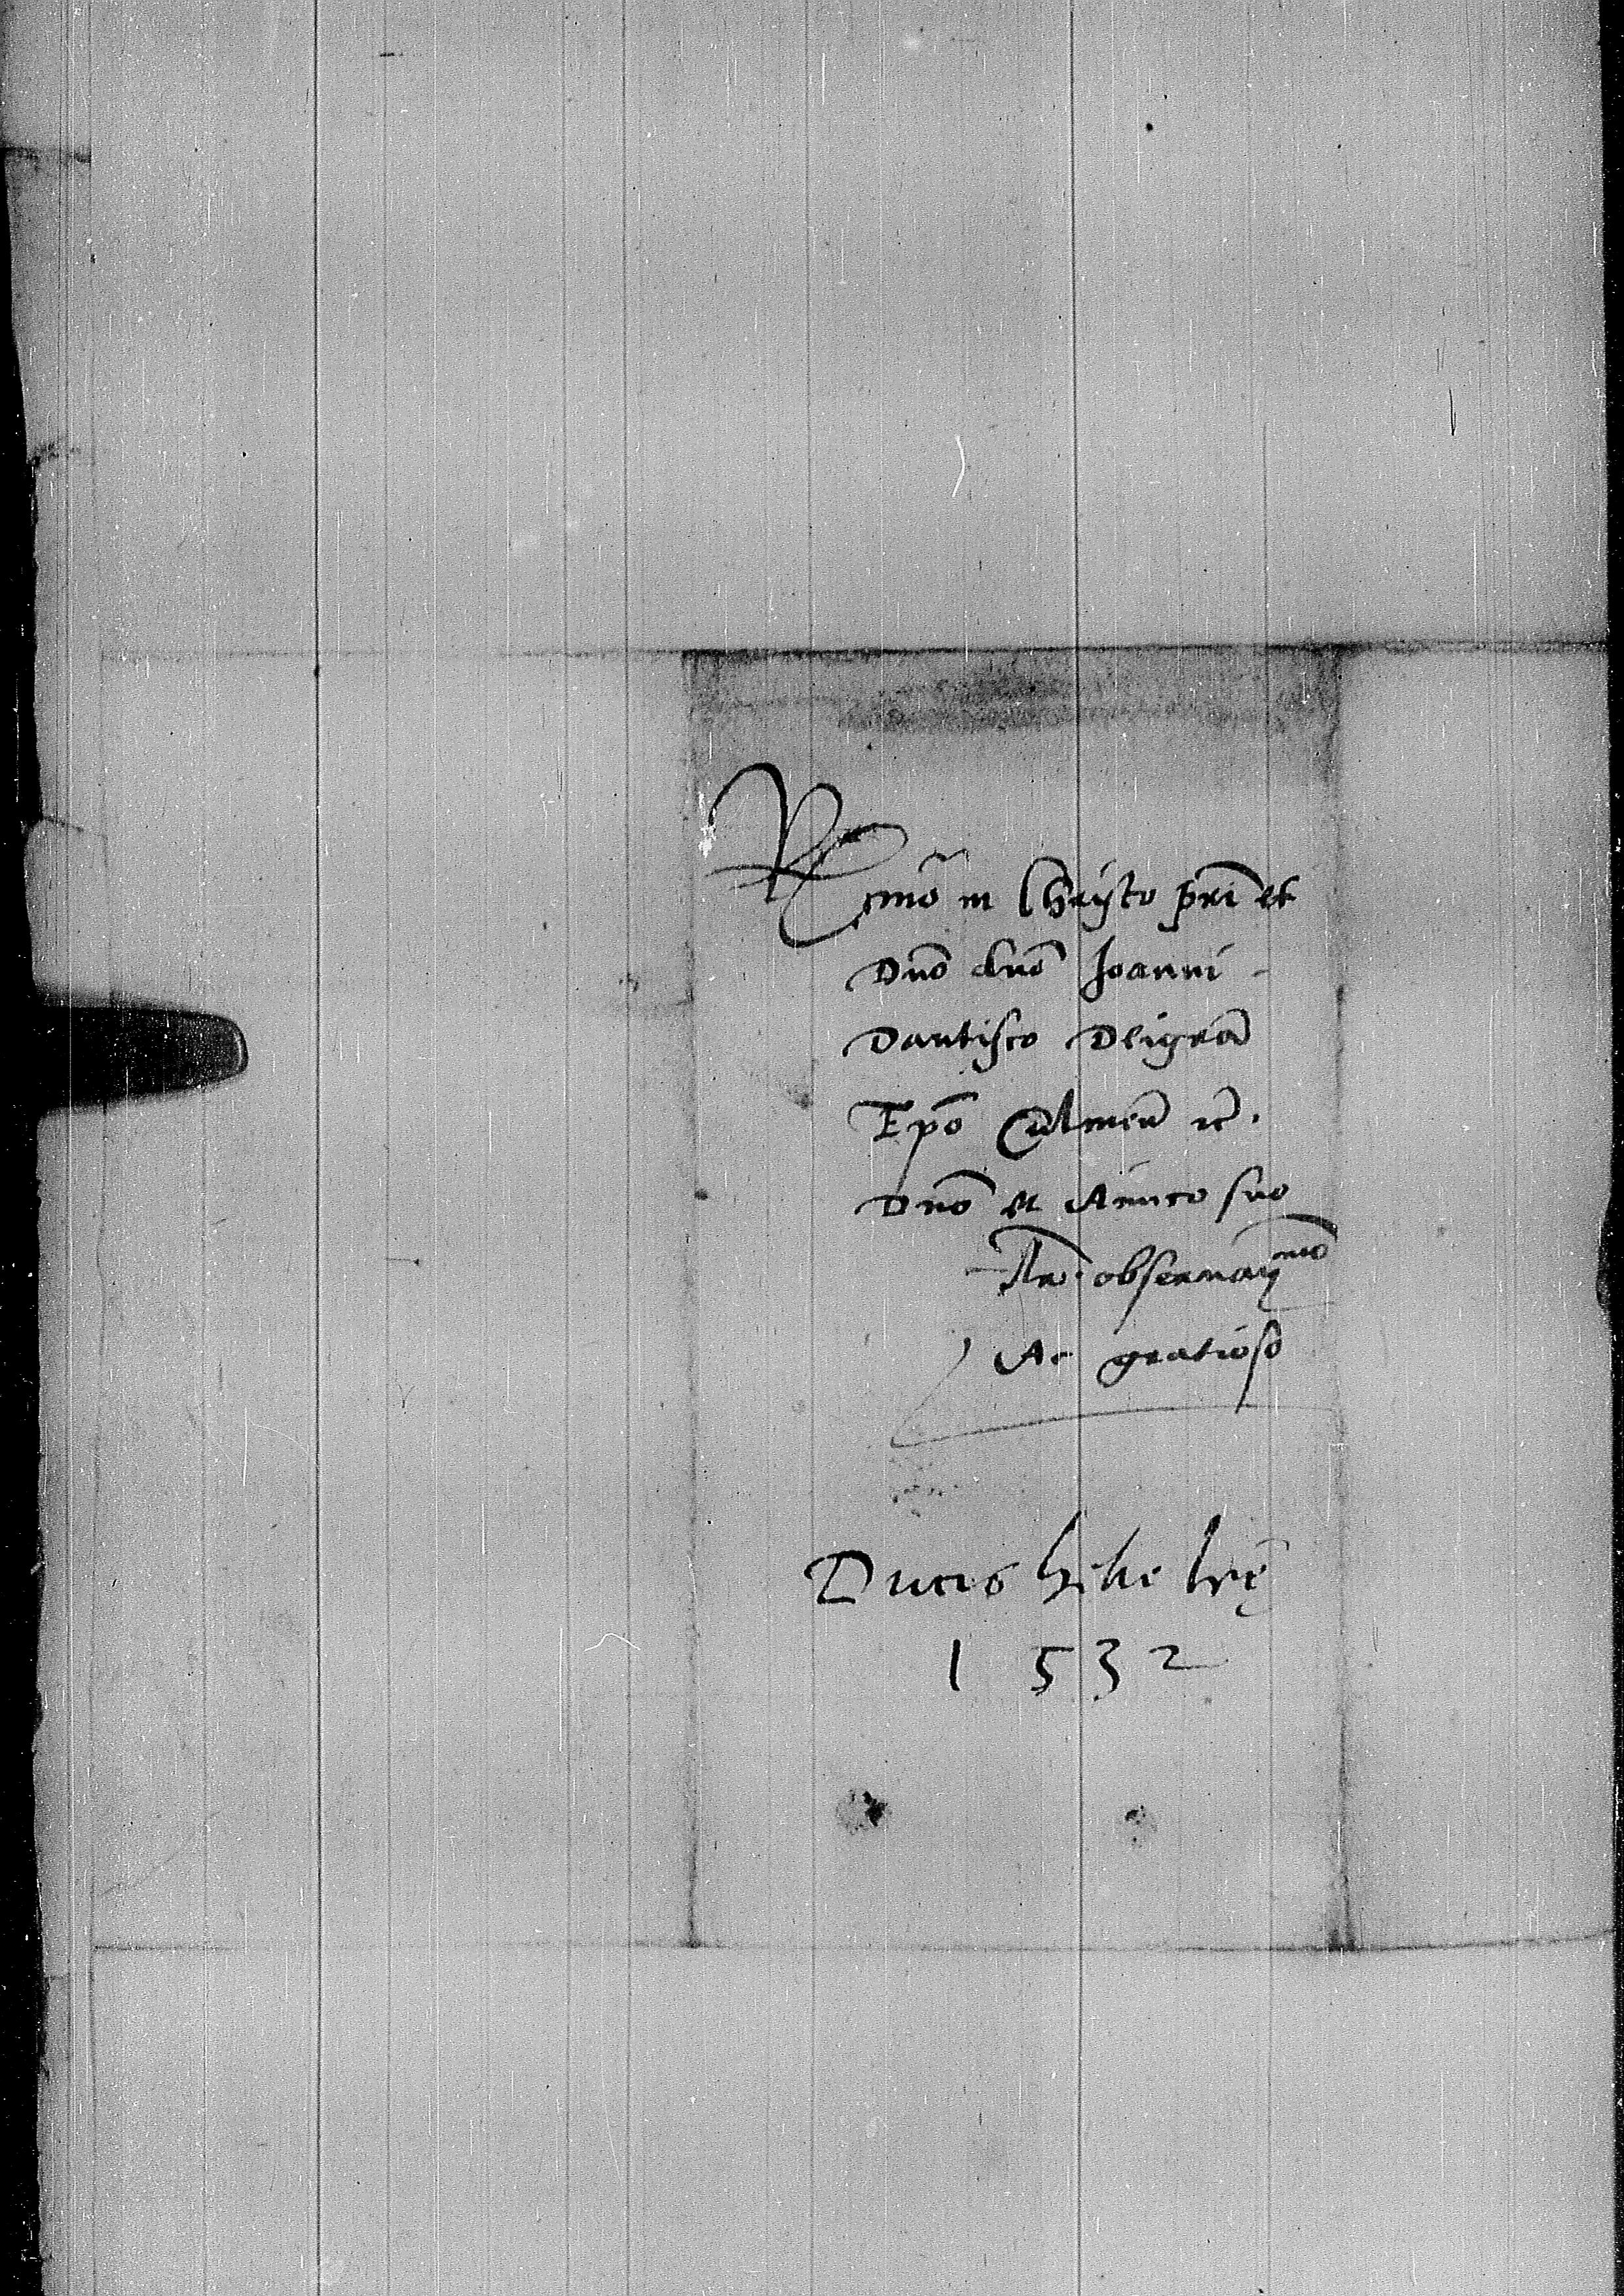 Rmo in Christo pri et
Dno dno Joanni
Dantisco Dei gra
Epo Culmen etc.
Dno et Amico suo
obseruan^mo
Ac gratioso
Ducis
1532